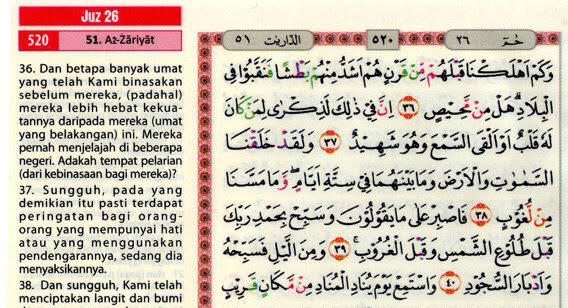 Juz 26
520 51. Aż-Żāriyāt
36. Dan betapa banyak umat
yang telah Kami binasakan
sebelum mereka, (padahal)
mereka lebih hebat kekua-
tannya daripada mereka (umat
yang belakangan) ini. Mereka
pernah menjelajah di beberapa
negeri. Adakah tempat pelarian
(dari kebinasaan bagi mereka)?
37. Sungguh, pada yang
demikian itu pasti terdapat
peringatan bagi orang-
orang yang mempunyai hati
atau yang menggunakan
pendengarannya, sedang dia
menyaksikannya.
38. Dan sungguh, Kami telah
menciptakan langit dan bumi
٢٦ ٥٢٠ الذّٰريٰت ٥١
وَكَمْ اَهْلَكْنَا قَبْلَهُمْ مِّنْ قَرْنٍ هُمْ اَشَدُّ مِنْهُمْ بَطْشًا فَنَقَّبُوْا فِى
الْبِلَادِۗ هَلْ مِنْ مَّحِيْصٍ ٣٦ اِنَّ فِيْ ذٰلِكَ لَذِكْرٰى لِمَنْ كَانَ
لَهٗ قَلْبٌ اَوْ اَلْقَى السَّمْعَ وَهُوَ شَهِيْدٌ ٣٧ وَلَقَدْ خَلَقْنَا
السَّمٰوٰتِ وَالْاَرْضَ وَمَا بَيْنَهُمَا فِيْ سِتَّةِ اَيَّامٍۖ وَّمَا مَسَّنَا
مِنْ لُّغُوْبٍ ٣٨ فَاصْبِرْ عَلٰى مَا يَقُوْلُوْنَ وَسَبِّحْ بِحَمْدِ رَبِّكَ
قَبْلَ طُلُوْعِ الشَّمْسِ وَقَبْلَ الْغُرُوْبِ ٣٩ وَمِنَ الَّيْلِ فَسَبِّحْهُ
وَاَدْبَارَ السُّجُوْدِ ٤٠ وَاسْتَمِعْ يَوْمَ يُنَادِ الْمُنَادِ مِنْ مَّكَانٍ قَرِيْبٍ